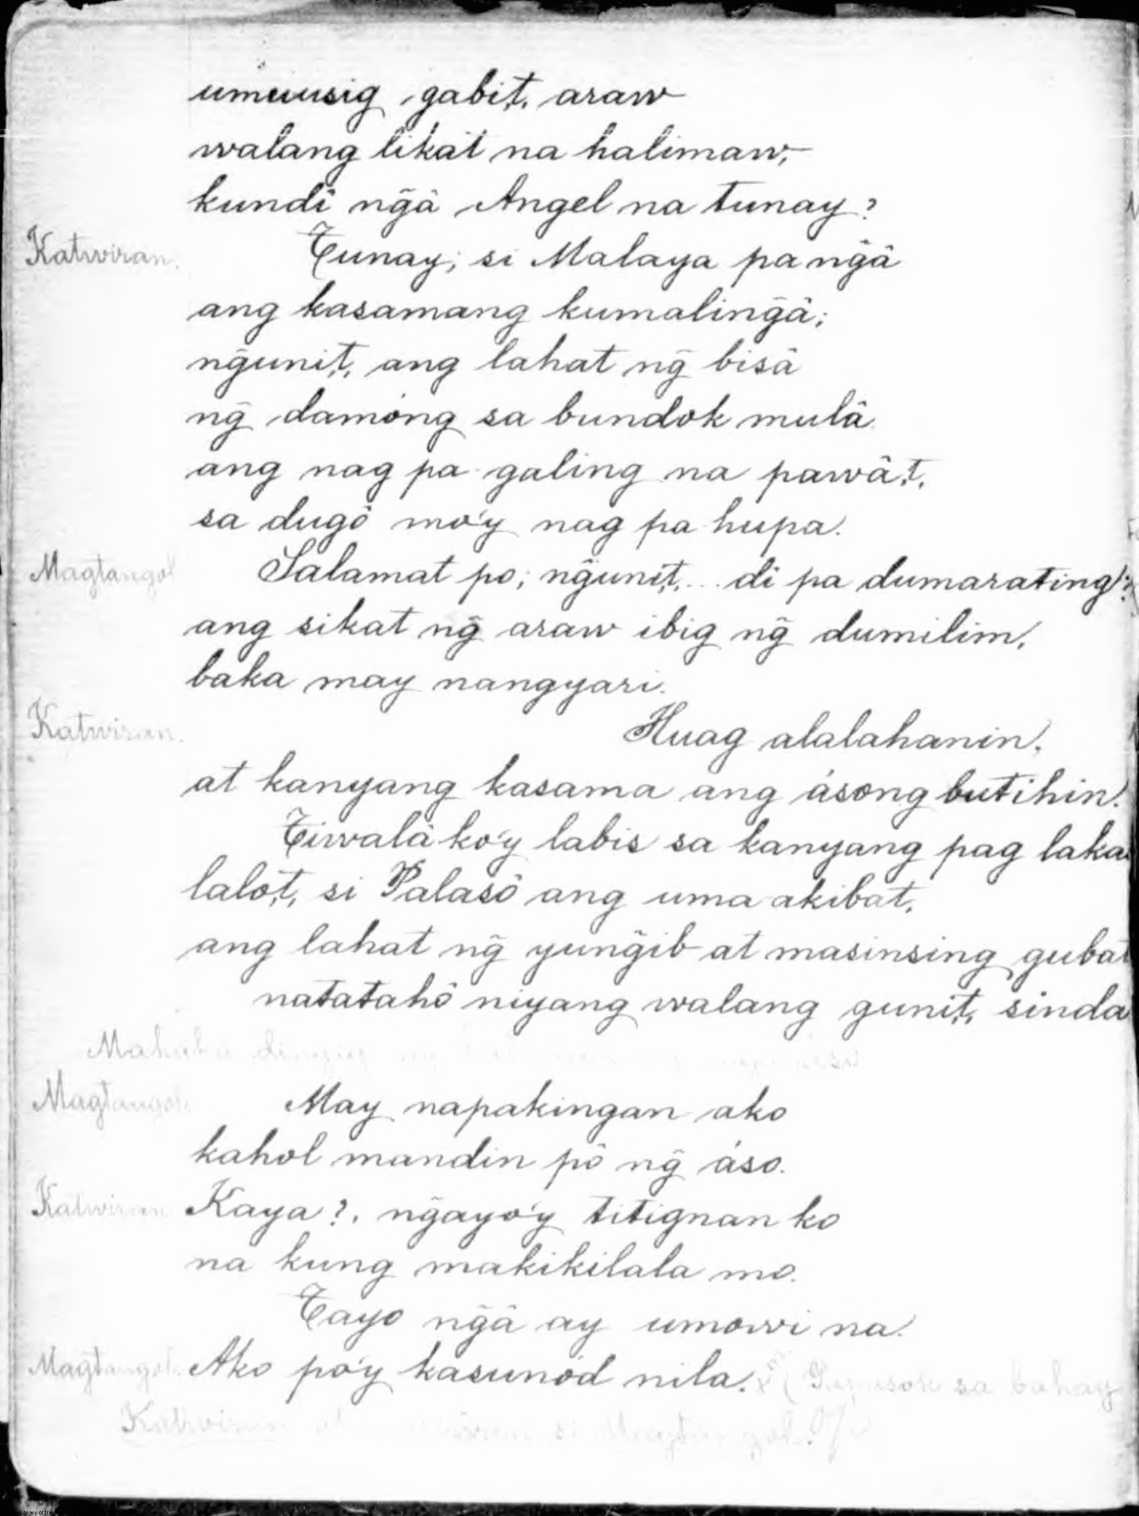 umuusig gabi,t, araw
walang likat na halimaw,
kundî ng̃â Angel na tunay?
Katwiran. Tunay; si Malaya pa ng̃â
ang kasamang kumaling̃â;
ng̃uni,t, ang lahat ng̃ bisâ
ng̃ damóng sa bundok mulâ
ang nag pa galing na pawâ,t,
sa dugô mo'y nag pa hupa.
Magtangol Salamat po; ng̃uni,t,... di pa dumarating!?
ang sikat ng̃ araw ibig ng̃ dumilim,
baka may nangyari.
Katwiran. Huag alalahanin,
at kanyang kasama ang ásong butihin.
Tiwalà ko'y labis sa kanyang pag laka
lalo,t, si Palasô ang uma akibat,
ang lahat ng̃ yung̃ib at masinsing gubat
natatahô niyang walang guni,t, sinda
Magtangol. May napakingan ako
kahol mandin pô ng̃ áso.
Katwiran Kaya?, ng̃ayo'y titignan ko
na kung makikilala mo.
Tayo ng̃â ay umowi na.
Magtangol. Ako po'y kasunód nila. ( sa bahay
Katwiran si